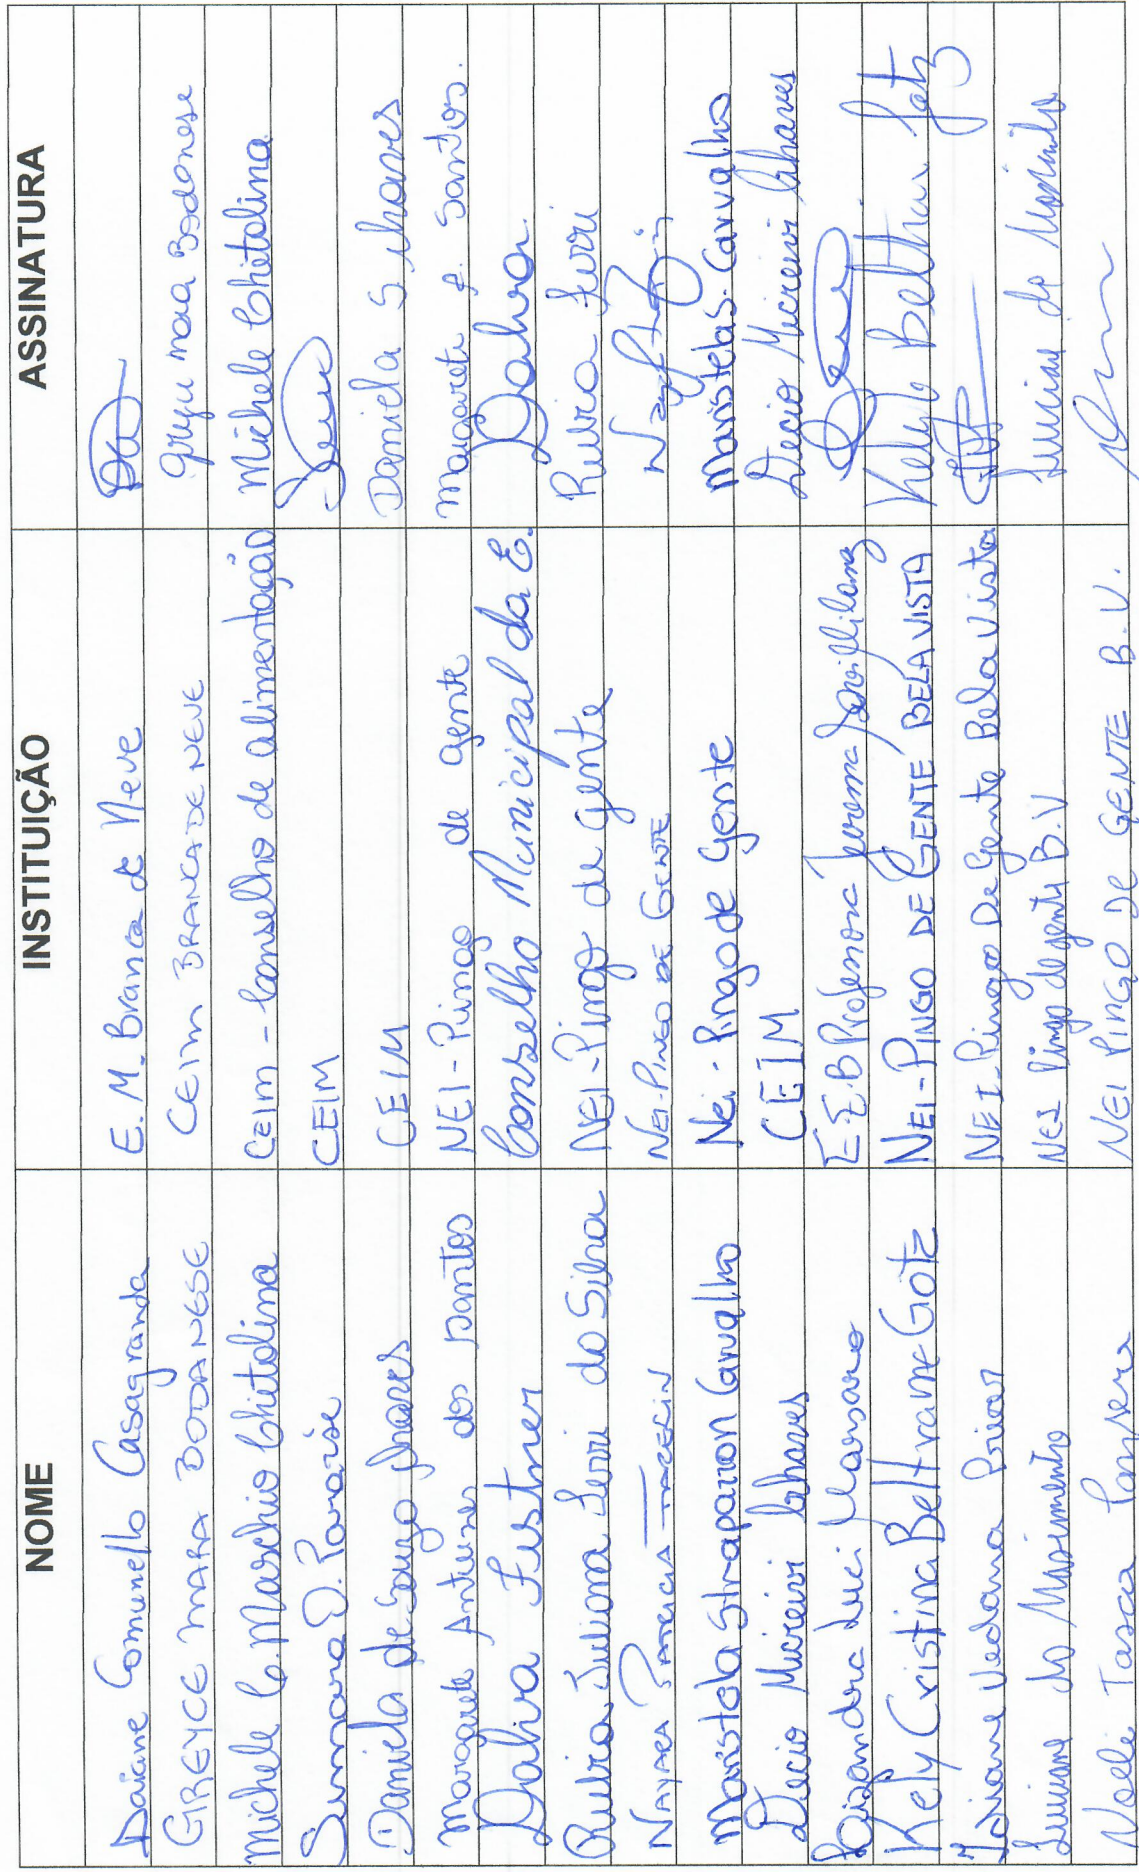 NOME INSTITUIÇÃO ASSINATURA
Daiane Comunello Casagranda E. M. Branca de Neve
GREYCE MARA BODANESE CEIM BRANCA DE NEVE Greyce Mara Bodanese
Michele C. Maschio Chitolina CEIM - Conselho de alimentação Michele Chitolina
Sumara D. Paraíse CEIM
Daniela de Souza Chaves CEIM Daniela S. Chaves
Margarete Antunes dos Santos NEI - Pingo de gente Margarete A. Santos.
Dalva Fistner Conselho Municipal da E. Dalva.
Rubia Juliana Ferri da Silva NEI - Pingo de gente Rubia Ferri
NAYARA NEI - PINGO DE GENTE
Maristela Strapazzon Carvalho Nei - Pingo de Gente Maristela S. Carvalho
Decio Chaves CEIM Decio Chaves
Luci E.E.B Professora
Kely Cristina Beltrame Gotz NEI - PINGO DE GENTE BELA VISTA Kely Gotz
NEI - Pingo De Gente Bela Vista
Luciane do Nascimento NEI Pingo de gente B.V
Noeli Tasca NEI PINGO DE GENTE B.V.